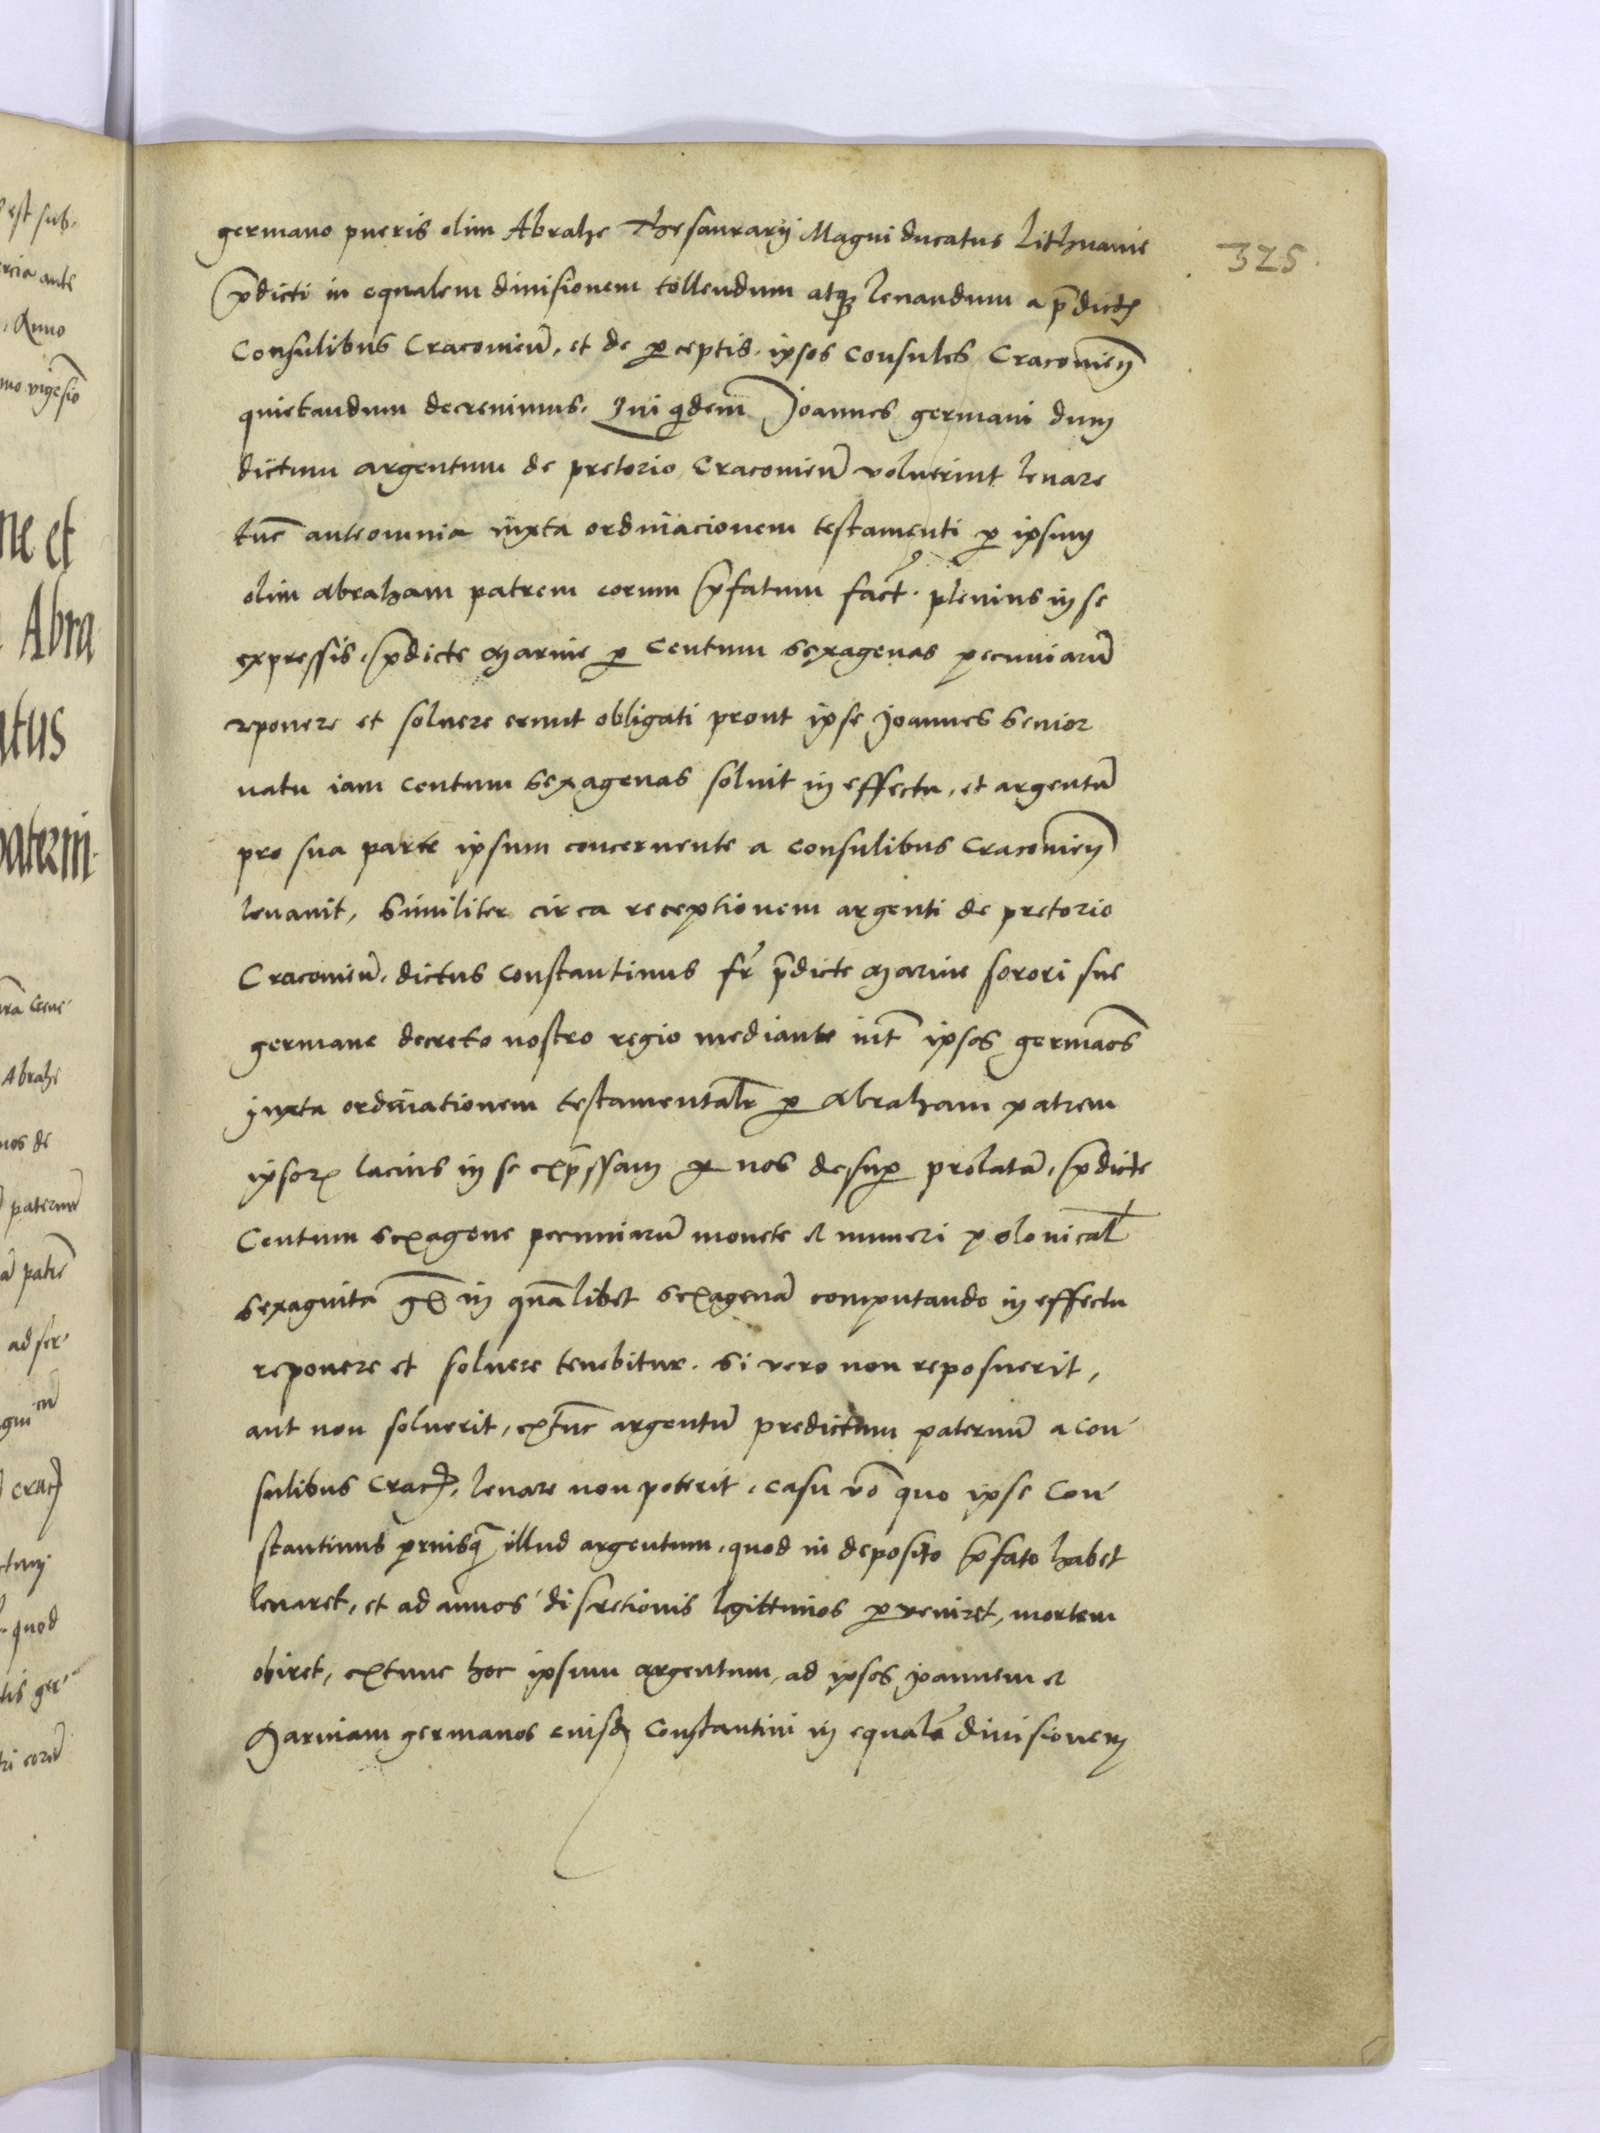 germano pueris olim Abrahe Thesaurarij Magni ducatus Lithuanie
325
p̄dicti in equalem diuisionem tollendum atq̄ leuandum a p̄dictis
Consulibus Cracouien̄, et de perceptis ipsos consules Cracouien̄
quietandum decreuimus. Qui quidem Joannes germani dum
dictum argentum de pretorio Cracouien̄ voluerint leuare
tūc ante omnia iuxta ordinacionem testamenti per ipsum
olim Abraham patrem eorum p̄fatum fact. plenius in se
expressis, p̄dicte Marine per Centum sexagenas pecuniarū
reponere et soluere erunt obligati prout ipse Joannes senior
natu iam centum sexagenas soluit in effectu, et argentū
pro sua parte ipsum concernente a consulibus Cracouien̄
leuauit, Similiter circa receptionem argenti de pretorio
Cracouien̄. dictus Constantinus fr̄ p̄dicte Marine sorori sue
germane decreto nostro regio mediante int̄ ipsos germāos
juxta ordinationem testamentalē per Abraham patrem
ipsorum lacius in se exp̄ssam per nos desuper prolatā, p̄dicte
Centum sexagene pecuniarū monete et numeri polonical̄
sexaginta gr̄ in quālibet sexagenā computando in effectu
reponere et soluere tenebitur. Si vero non reposuerit,
aut non soluerit, extūc argentū predictum paternū a con
sulibus Crac̄, leuare non poterit, casu v̄o quo ipse Con
stantinus priusq̄ illud argentum, quod in deposito p̄fato habet
leuaret, et ad annos discretionis legittimos perueniret, mortem
obiret, extunc hoc ipsum argentum, ad ipsos Joannem et
Mariniam germanos eiusd. Constantini in equalē diuisionem